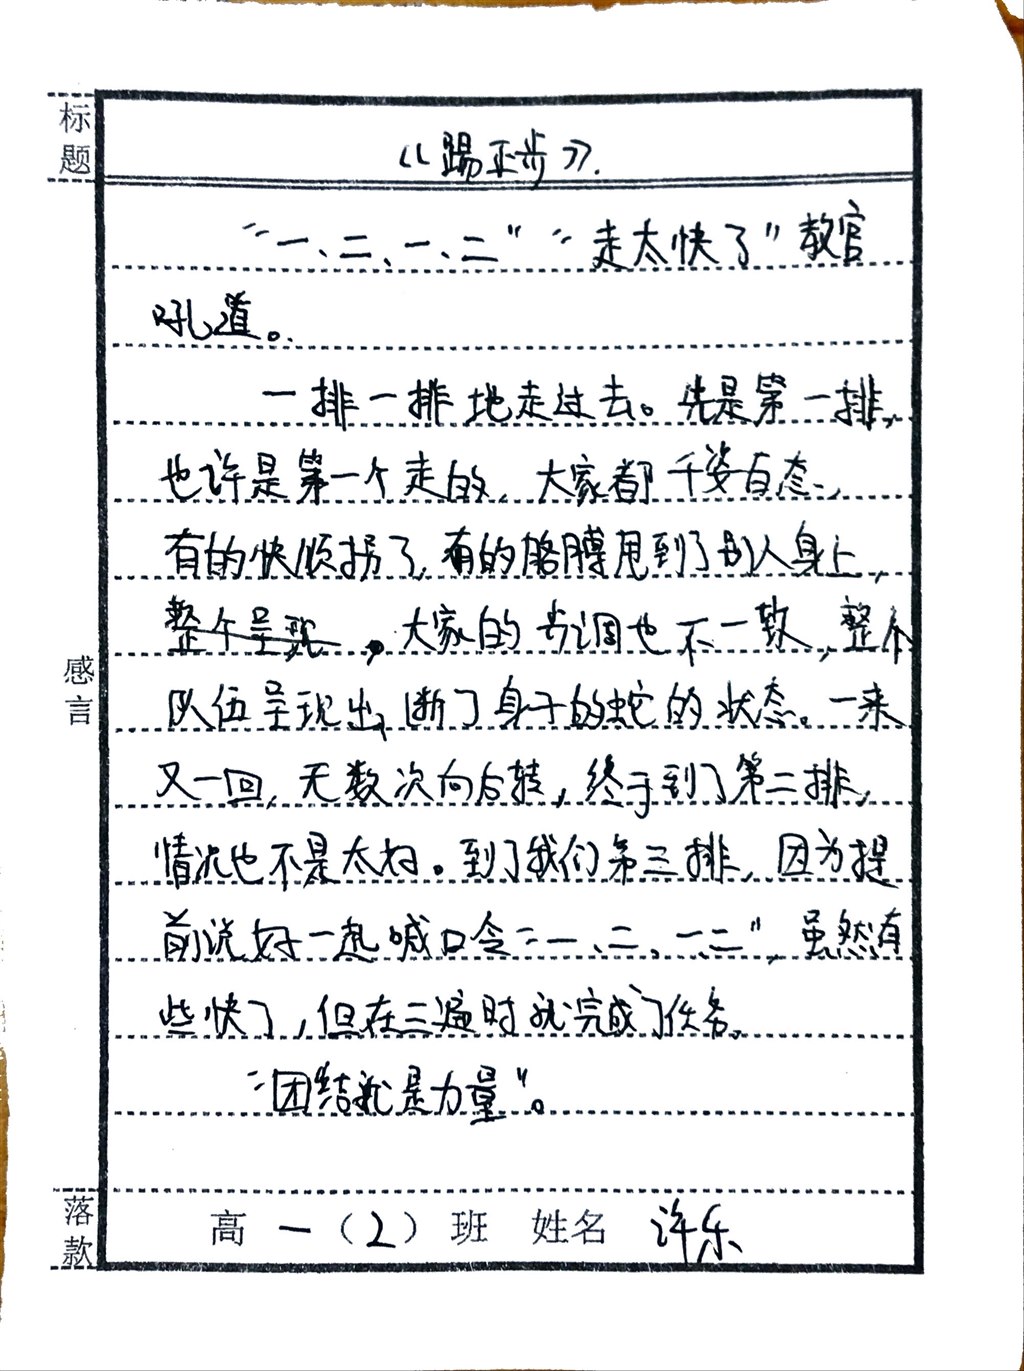 标题
《踢正步》.
“一、二、一、二”“走太快了”教官
吼道。
一排一排地走过去。先是第一排,
也许是第一个走的,大家都千姿百态,
有的快顺拐了,有的胳膊甩到了别人身上,
整个呈现,大家的步调也不一致,整个
队伍呈现出断了身子的蛇的状态。一来
又一回,无数次向后转,终于到了第二排,
情况也不是太好。到了我们第三排,因为提
前说好一起喊口令“一、二、一二”,虽然有
些快了,但在三遍时就完成了任务。
“团结就是力量”。
感言
落款
高一(2)班 姓名 许乐